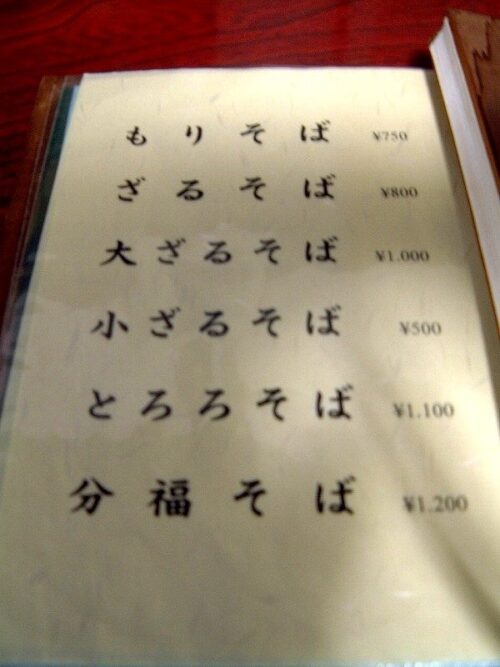 もりそば ¥750
ざるそば ¥800
大ざるそば ¥1.000
小ざるそば ¥500
とろろそば ¥1.100
分福そば ¥1.200